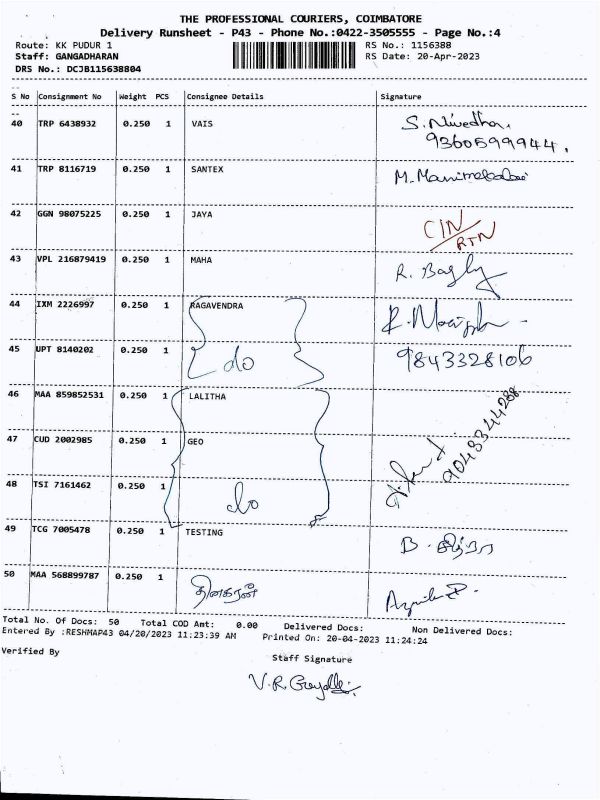 THE PROFESSIONAL COURIERS, COIMBATORE
Delivery Runsheet - P43 - Phone No.:0422-3505555 - Page No.:4
Route: KK PUDUR 1 RS No.: 1156388
Staff: GANGADHARAN RS Date: 20-Apr-2023
DRS No.: DCJB115638804
S No Consignment No Weight PCS Consignee Details Signature
40 TRP 6438932 0.250 1 VAIS S. Nivedha.
9360599944.
41 TRP 8116719 0.250 1 SANTEX M. Manimekalai
42 GGN 98075225 0.250 1 JAYA CIN/RTN
43 VPL 216879419 0.250 1 MAHA R.
44 IXM 2226997 0.250 1 RAGAVENDRA R.
45 UPT 8140202 0.250 1 do 9843328106
46 MAA 859852531 0.250 1 LALITHA
47 CUD 2002985 0.250 1 GEO 9048344288
48 TSI 7161462 0.250 1 do
49 TCG 7005478 0.250 1 TESTING B. சித்ரா
50 MAA 568899787 0.250 1 தினகரன்
Total No. Of Docs: 50 Total COD Amt: 0.00 Delivered Docs: Non Delivered Docs:
Entered By :RESHMAP43 04/20/2023 11:23:39 AM Printed On: 20-04-2023 11:24:24
Verified By
Staff Signature
V.R.